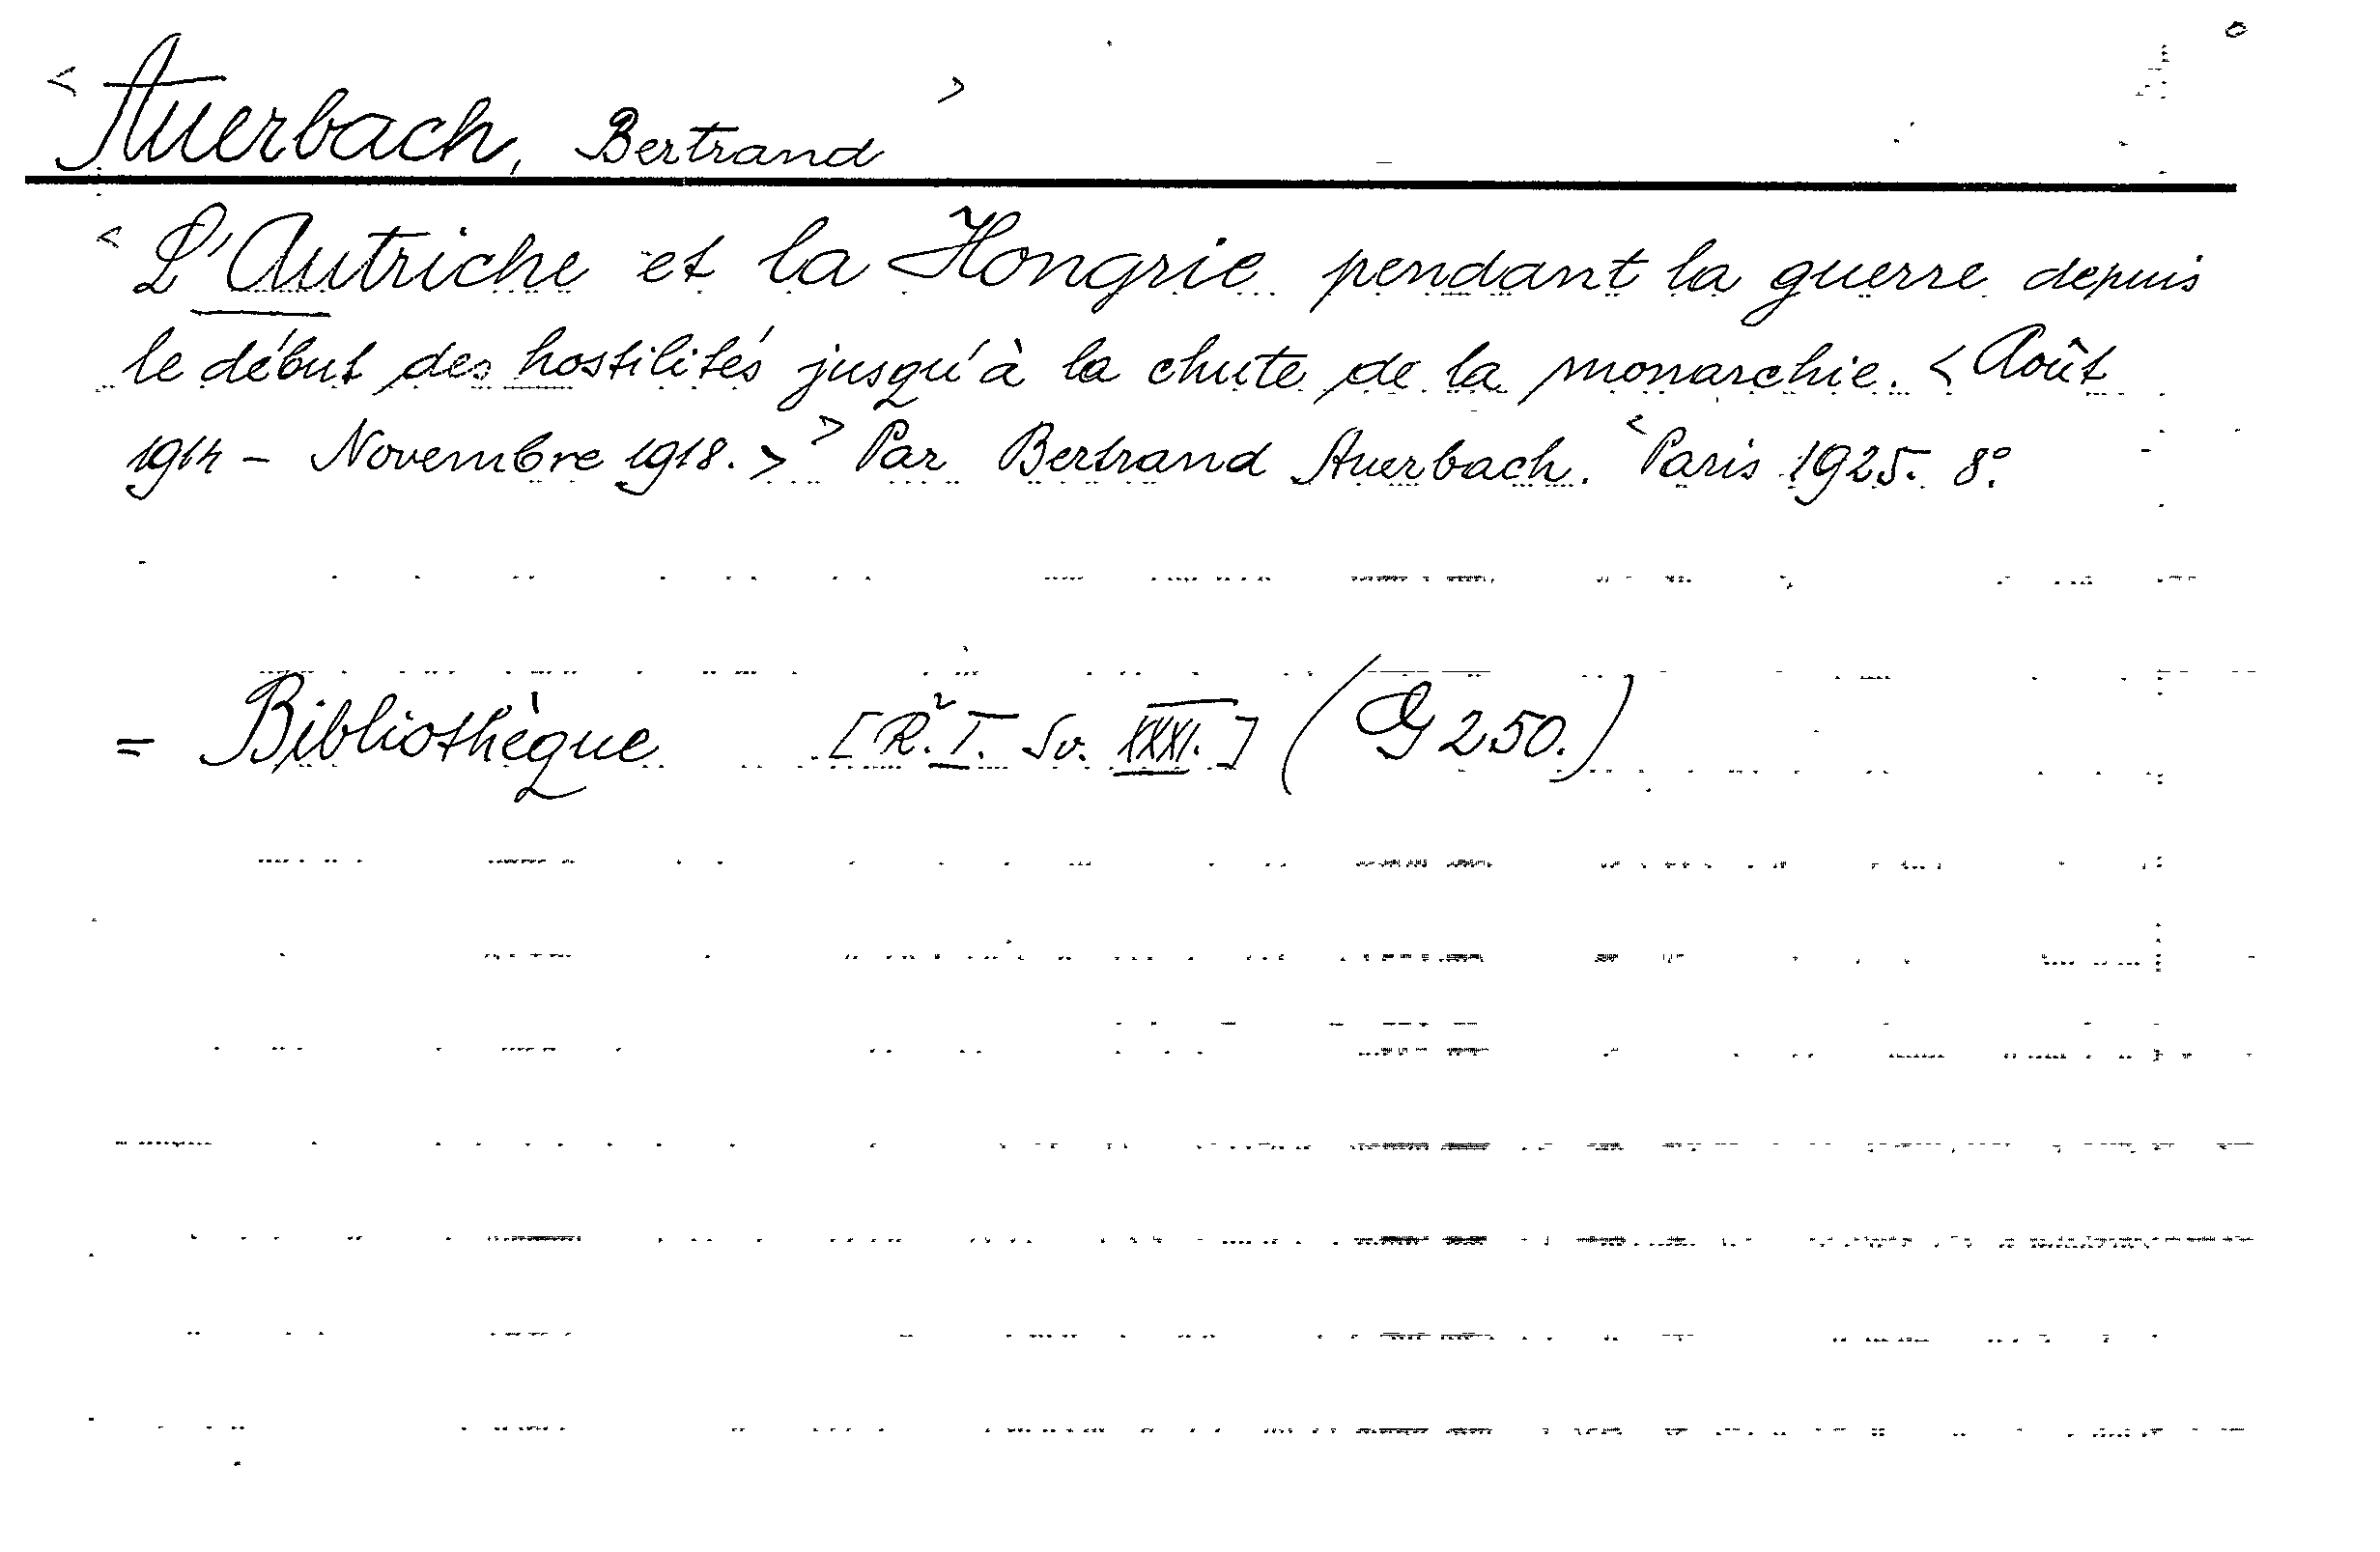 < Auerbach, Bertrand >
< L'Autriche et la Hongrie pendant la guerre depuis
le début des hostilités jusqu'à la chute de la monarchie. < Août
1914 – Novembre 1918. > > Par Bertrand Auerbach. < Paris 1925. 8°.
= Bibliothèque [R. I. Sv. XXXI.] (G 250.)